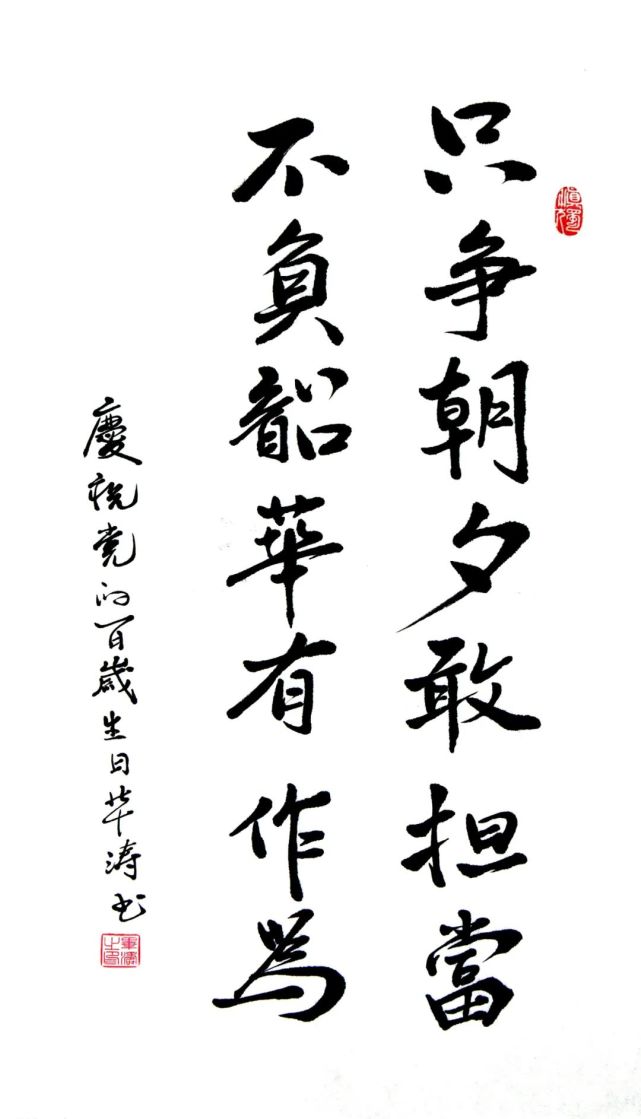 只争朝夕敢担當
不負韶華有作為
慶祝党的百歲生日华涛书